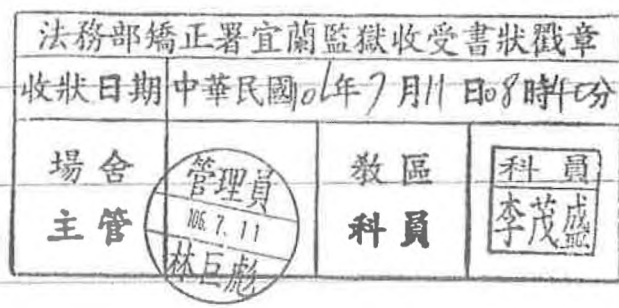 法務部矯正署宜蘭監獄收受書狀戳章
收狀日期 中華民國106年7月11日08時40分
場舍 主管
管理員
106. 7. 11
林巨彪
教區 科員
科員
李茂盛